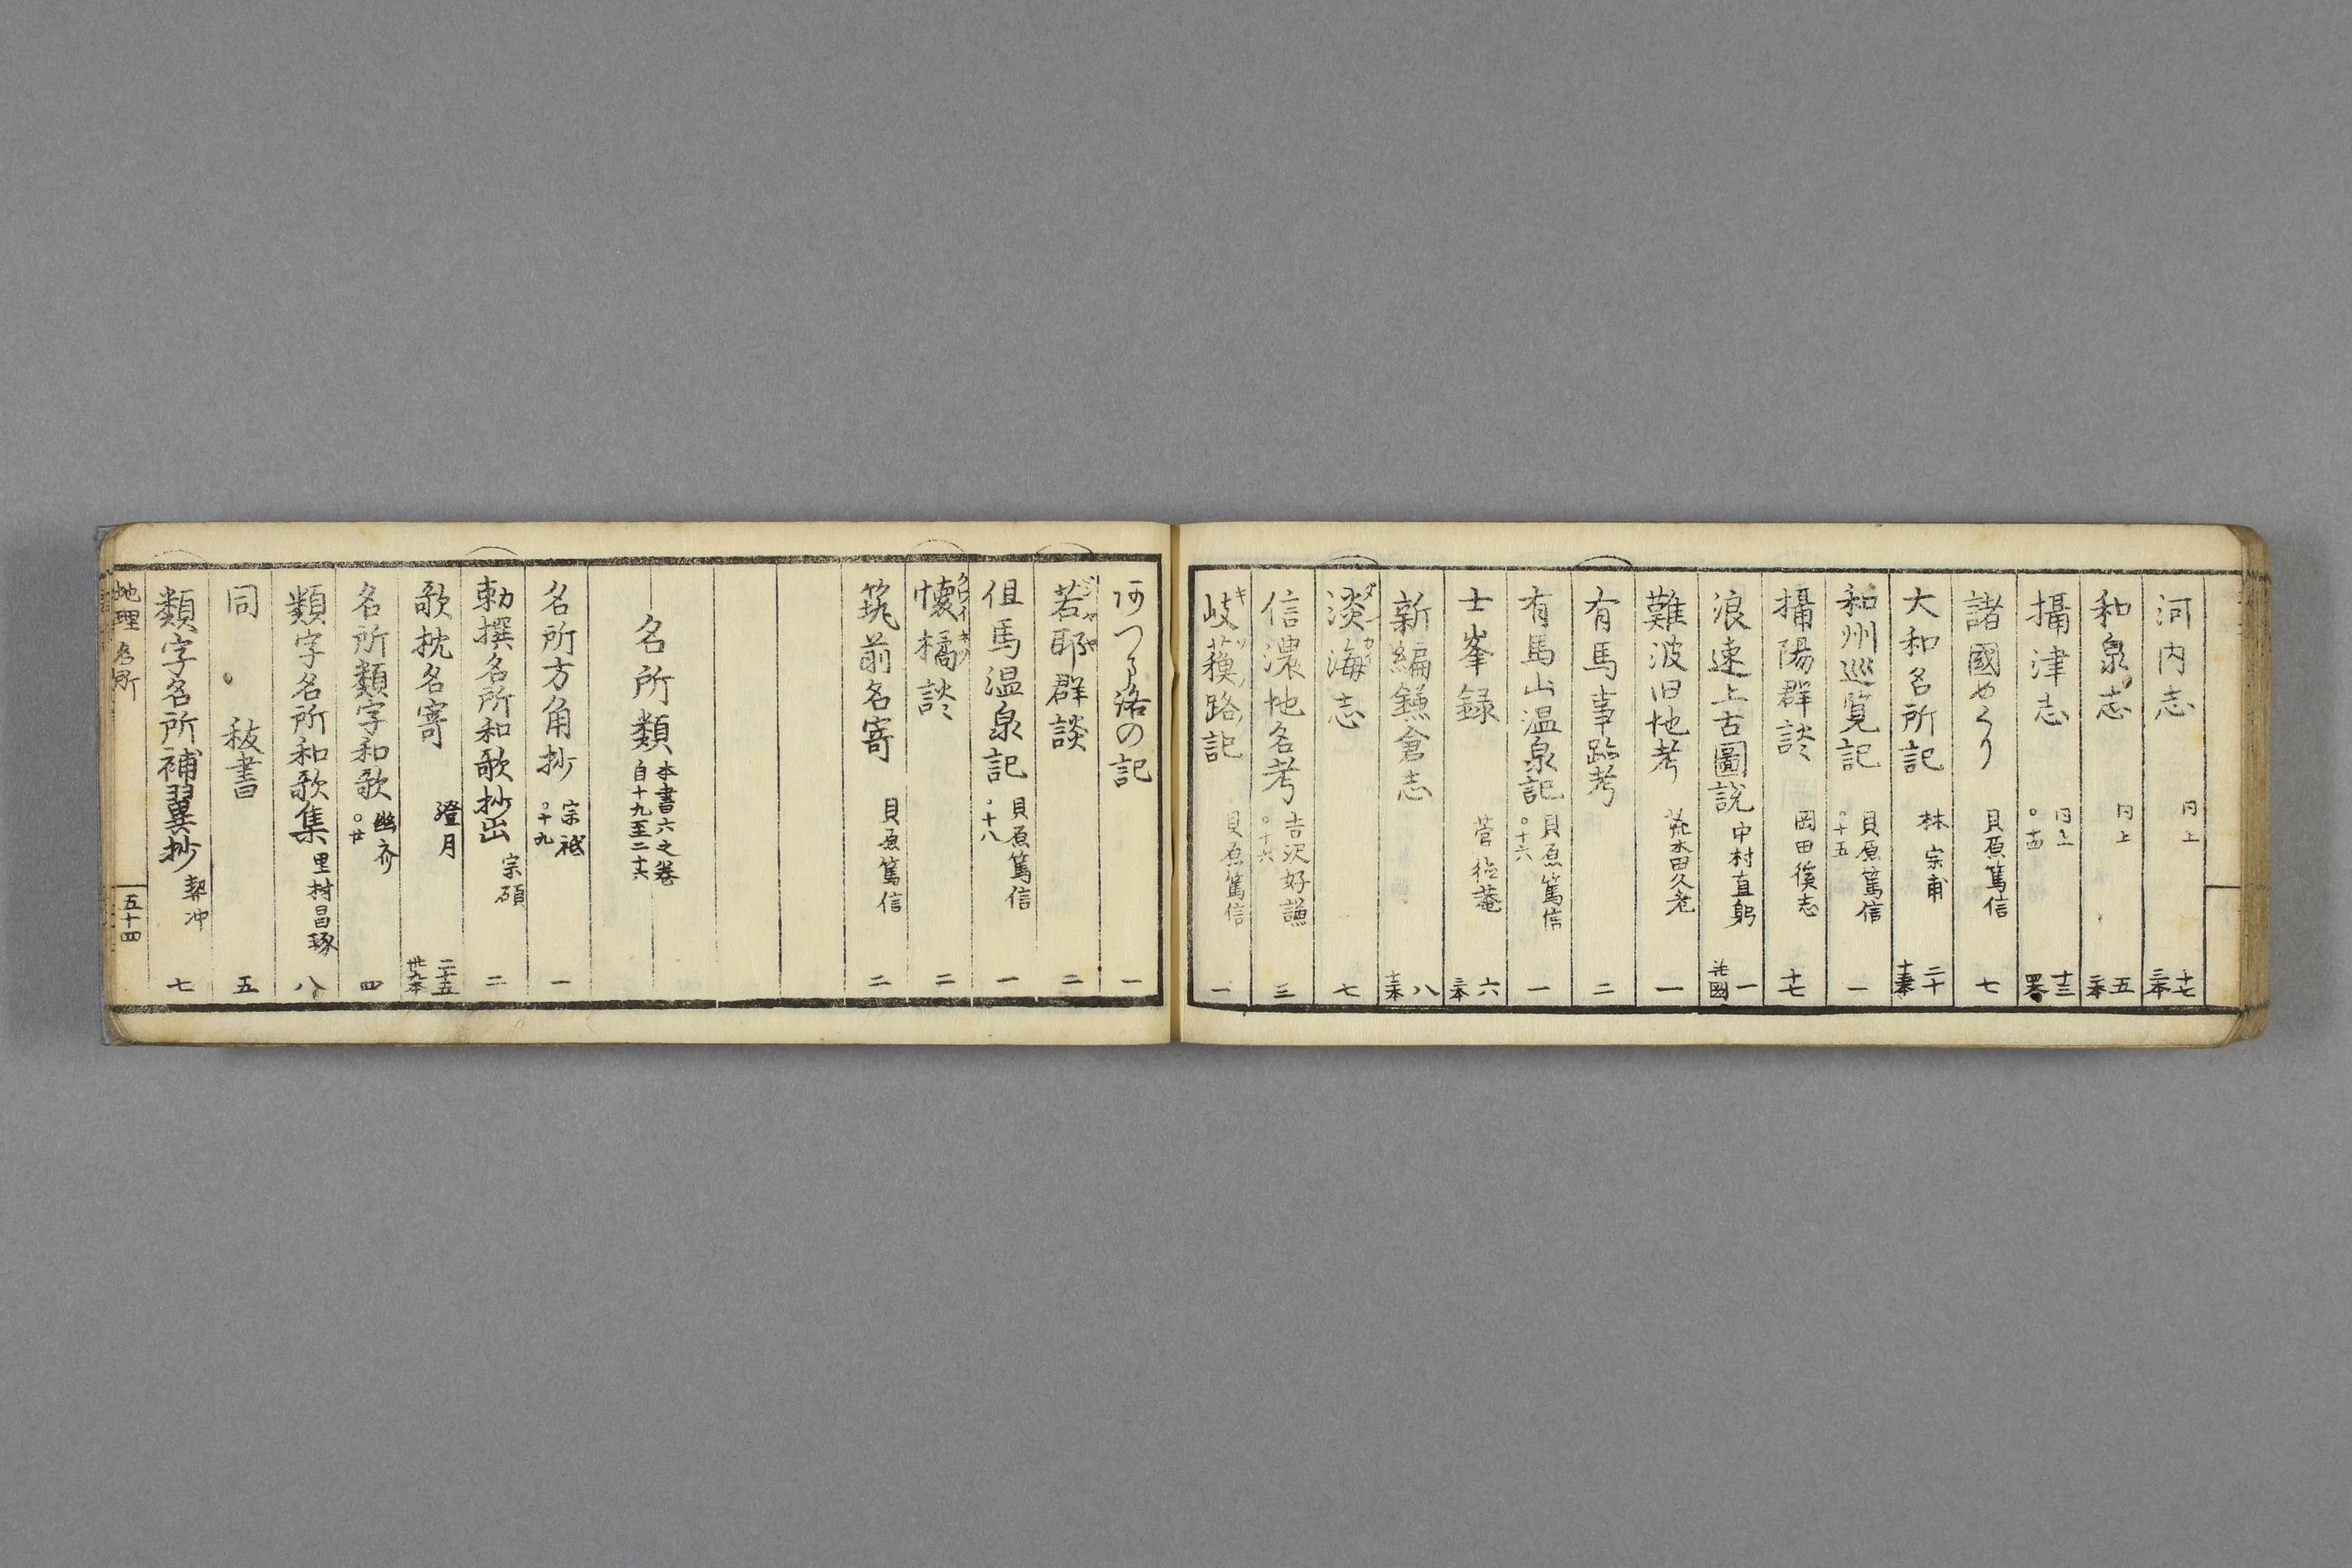 河内志 同上 十七 三本
和泉志 同上 五 二本
攝津志 同上 ○十四 十三
諸國めくり 貝原篤信 七
大和名所記 林宗甫 二十 十本
和州巡覧記 貝原篤信 ○十五 一
攝陽群談 岡田徯志 十七
浪速上古圖説 中村直躬 一
難波旧地考 荒木田久老 一
有馬事跡考 二
有馬山温泉記 貝原篤信 ○十六 一
士峯録 菅 菴 六
新編鎌倉志 八 十二本
淡海志 七
信濃地名考 吉沢好謙 ○十六 三
岐蘓路記 貝原篤信 一
の記 一
若耶群談 二
但馬温泉記 貝原篤信 ○十八 一
懐橘談 二
筑前名寄 貝原篤信 二
名所類 本書六之巻 自十九至二十六
名所方角抄 宗祇 ○十九 一
勅撰名所和歌抄出 宗碩 二
歌枕名寄 澄月 二十五 卅九本
名所類字和歌 幽斎 ○廿 四
類字名所和歌集 里村昌琢 八
同 秘書 五
類字名所補翼抄 契冲 七
地理 名所 五十四